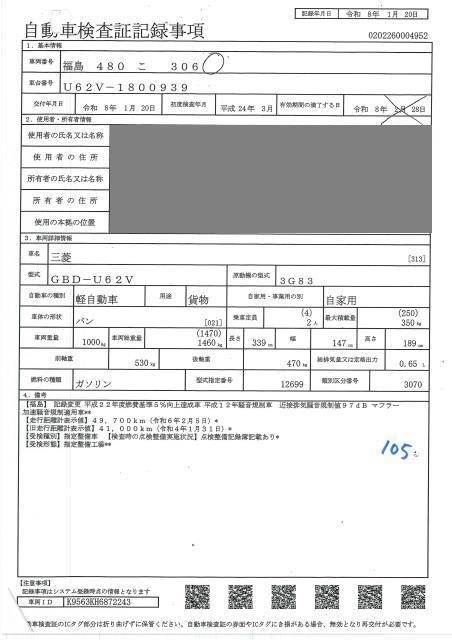 記録年月日 令和 8年 1月 20日
自動車検査証記録事項
0202260004952
1. 基本情報
車両番号 福島 480 こ 306
車台番号 U62V-1800939
交付年月日 令和 8年 1月 20日 初度検査年月 平成 24年 3月 有効期間の満了する日 令和 8年 2月 28日
2. 使用者・所有者情報
使用者の氏名又は名称
使用者の住所
所有者の氏名又は名称
所有者の住所
使用の本拠の位置
3. 車両詳細情報
車名 三菱 [313]
型式 GBD-U62V 原動機の型式 3G83
自動車の種別 軽自動車 用途 貨物 自家用・事業用の別 自家用
車体の形状 バン [021] 乗車定員 (4) 2人 最大積載量 (250) 350kg
車両重量 1000kg 車両総重量 (1470) 1460kg 長さ 339cm 幅 147cm 高さ 189cm
前軸重 530kg 後軸重 470kg 総排気量又は定格出力 0.65 L
燃料の種類 ガソリン 型式指定番号 12699 類別区分番号 3070
4. 備考
【福島】 記録変更 平成22年度燃費基準5%向上達成車 平成12年騒音規制車 近接排気騒音規制値97dB マフラー
加速騒音規制適用車**
【走行距離計表示値】49,700km(令和6年2月5日)*
【旧走行距離計表示値】41,000km(令和4年1月31日)*
【受検種別】指定整備車 【検査時の点検整備実施状況】点検整備記録簿記載あり*
【受検形態】指定整備工場**
105
【注意事項】
記録事項はシステム登録時点の情報となります
車両ID K9563KH6872243
自動車検査証のICタグ部分は折り曲げずに保管してください。自動車検査証の券面やICタグにき損がある場合、無効となり再交付が必要です。